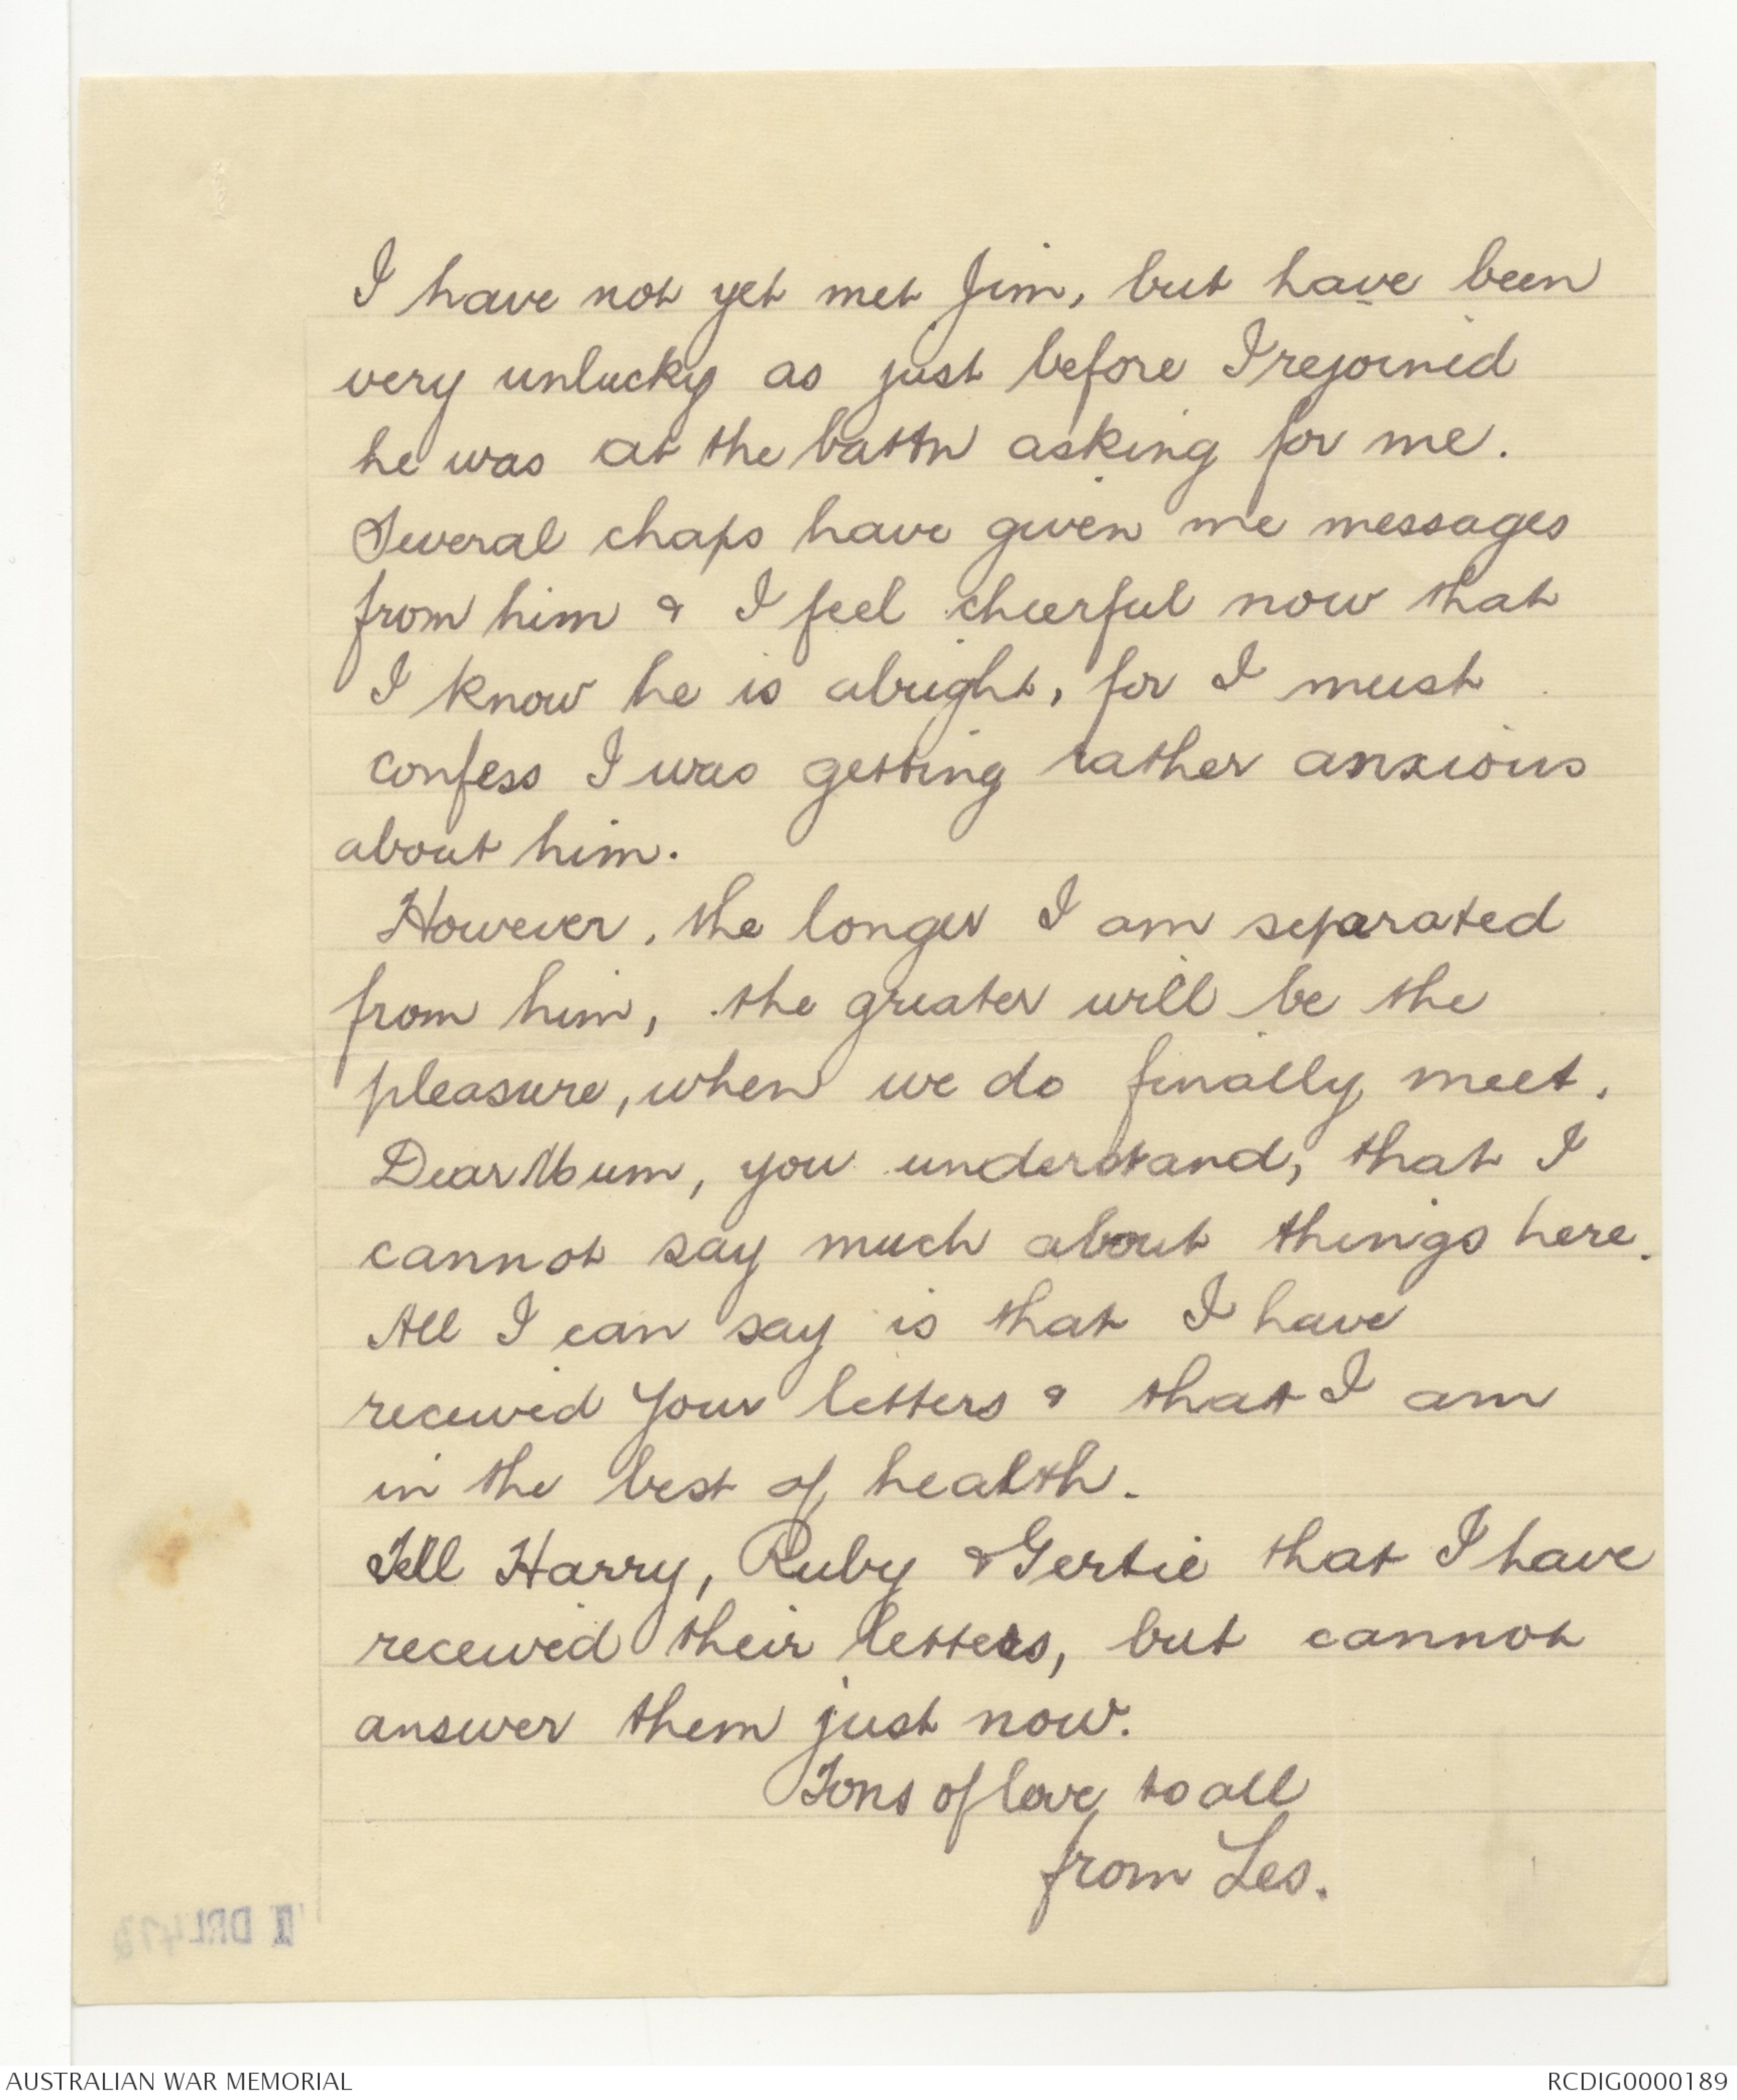 I have not yet met Jim, but have been
very unlucky as just before I rejoined
he was at the battn asking for me.
Several chaps have given me messages
from him & I feel cheerful now that
I know he is alright, for I must
confess I was getting rather anxious
about him.
However, the longer I am separated
from him, the greater will be the
pleasure, when we do finally meet.
Dear Mum, you understand, that I
cannot say much about things here.
All I can say is that I have
received your letters & that I am
in the best of health.
Tell Harry, Ruby & Gertie that I have
received their letters, but cannot
answer them just now.
Tons of love to all
from Les.
DRL
AUSTRALIAN WAR MEMORIAL
RCDIG0000189